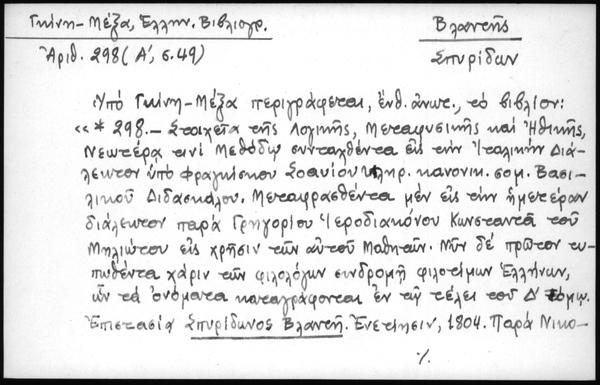 Γκίνη-Μέξα, Ἑλλην. Βιβλιογρ.
Βλαντῆς
Ἀριθ. 298 (Α΄, σ. 49)
Σπυρίδων
Ὑπό Γκίνη-Μέξα περιγράφεται, ἐνθ. ἀνωτ., τό βιβλίον:
«* 298.- Στοιχεῖα τῆς Λογικῆς, Μεταφυσικῆς καί Ἠθικῆς,
Νεωτέρᾳ τινί Μεθόδῳ συνταχθέντα εἰς τήν Ἰταλικήν Διά-
λεκτον ὑπό Φραγκίσκου Σοαυίου κληρ. κανονικ. σομ. Βασι-
λικοῦ Διδασκάλου. Μεταφρασθέντα μέν εἰς τήν ἡμετέραν
διάλεκτον παρά Γρηγορίου Ἱεροδιακόνου Κωνσταντᾶ τοῦ
Μηλιώτου εἰς χρῆσιν τῶν αὐτοῦ Μαθητῶν. Νῦν δέ πρῶτον τυ-
πωθέντα χάριν τῶν φιλολόγων συνδρομῇ φιλοτίμων Ἑλλήνων,
ὧν τά ὀνόματα καταγράφονται ἐν τῷ τέλει τοῦ Δ΄ τόμῳ.
Ἐπιστασίᾳ Σπυρίδωνος Βλαντῆ. Ἐνετίησιν, 1804. Παρά Νικο-
./.